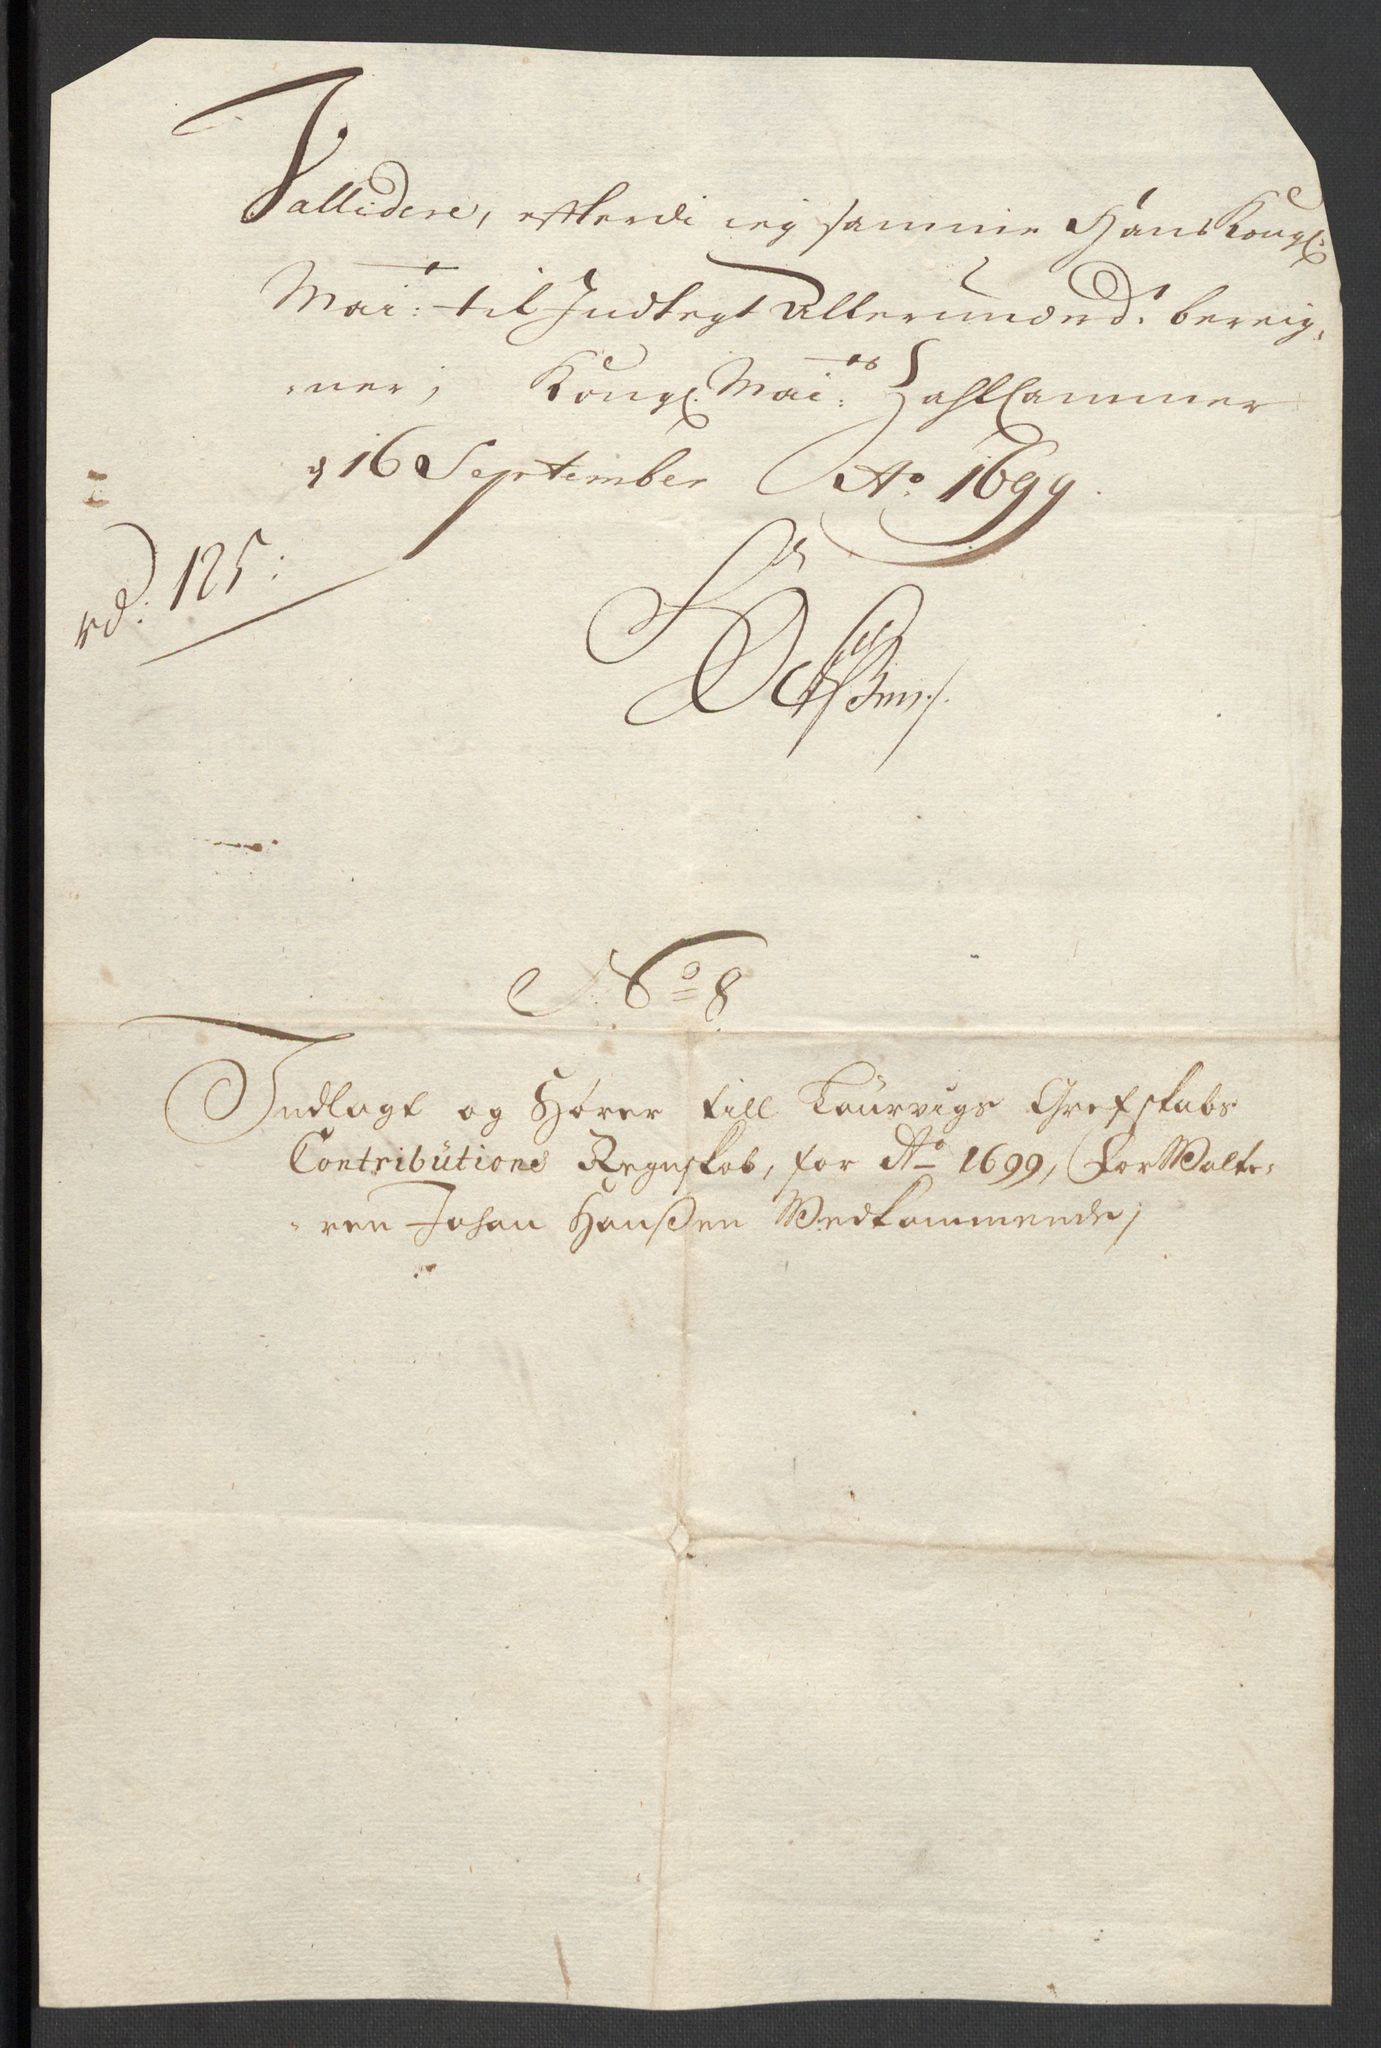 Vallidere, efterdi ieg samme Hans Kongl:
Mait: til Indtegt Allerunderd.t bereig,
,ner; Kongl. Mai:ts Zahlkammer
d 16 September Ao. 1699.
rd. 125.
No 8
Indlagt og Hører till Laurvigs Grefskabs
Contributions Regnskab, for Ao 1699, ForWalte,
,ren Johan Hanßen Vedkommende;